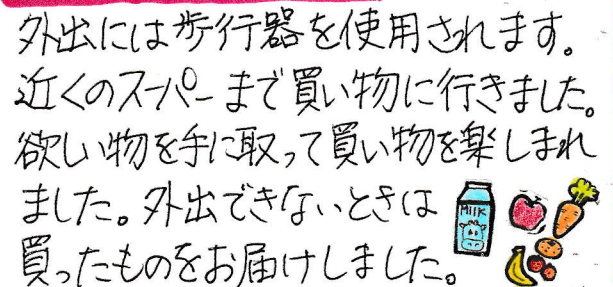 外出には歩行器を使用されます。
近くのスーパーまで買い物に行きました。
欲しい物を手に取って買い物を楽しまれ
ました。外出できないときは
買ったものをお届けしました。
MILK